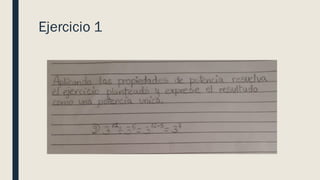 Ejercicio 1
Aplicando las propiedades de potencia resuelva
el ejercicio planteado y exprese el resultado
como una potencia unica.